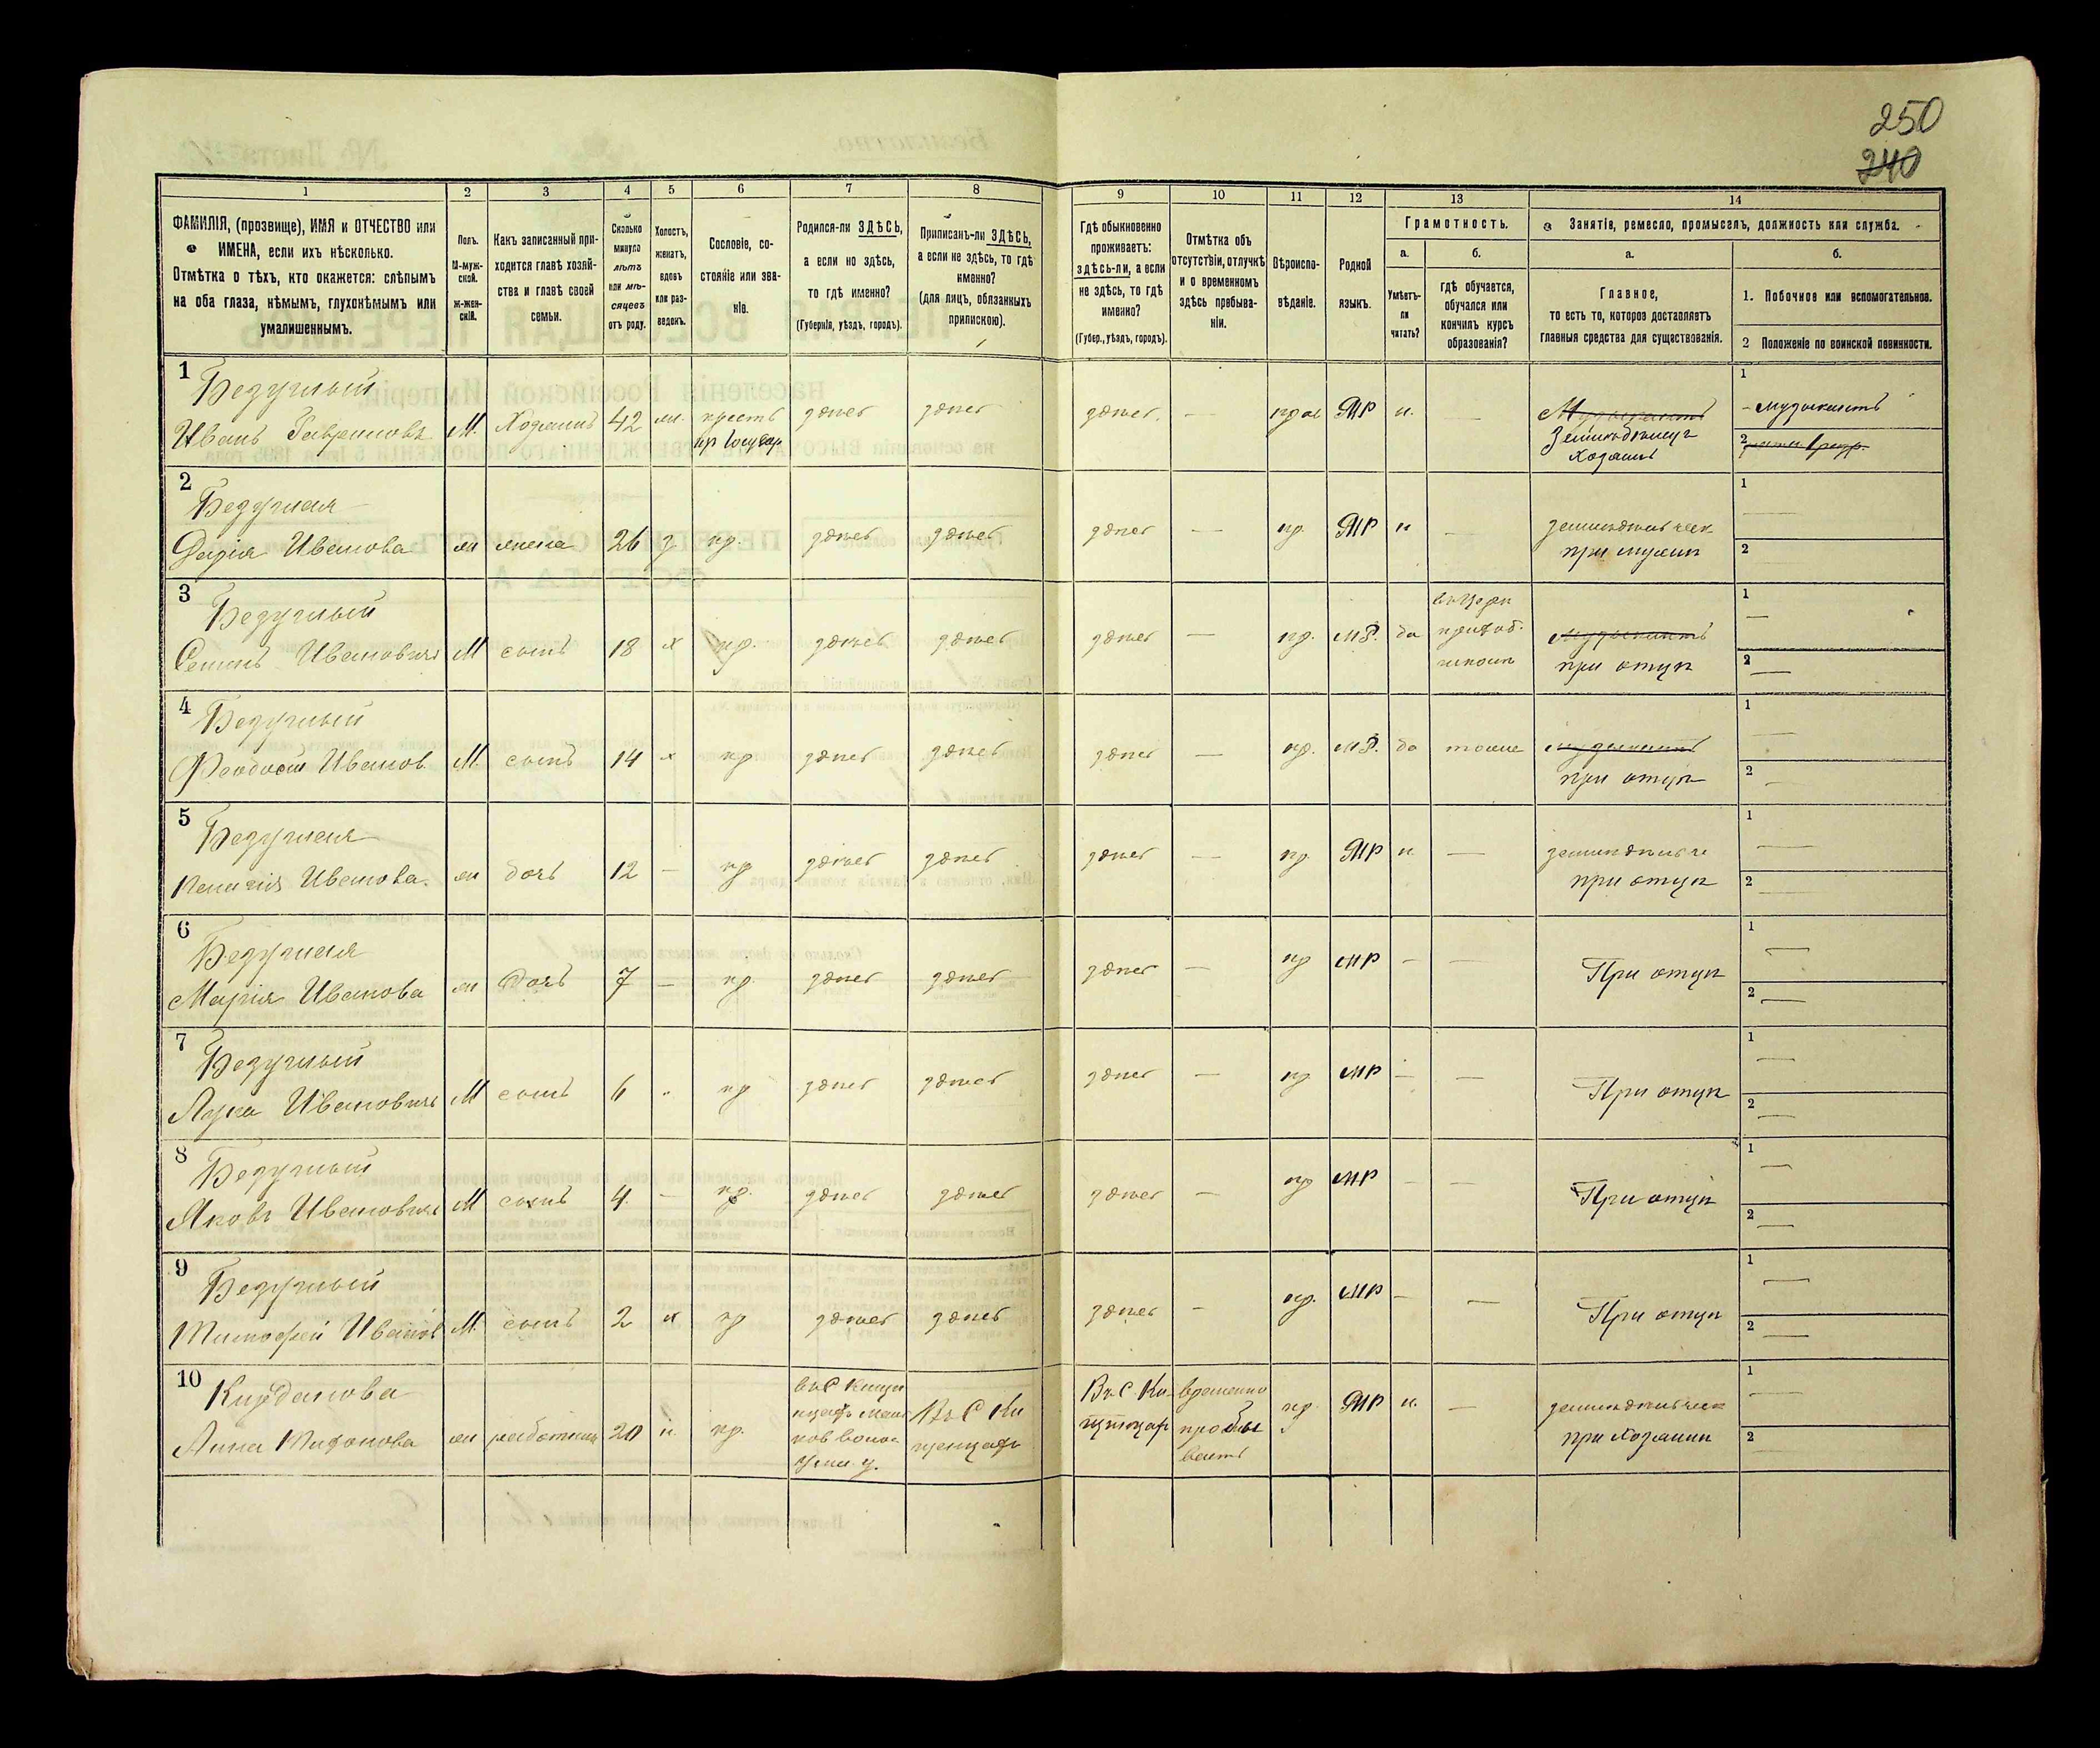 250
240
1 2 3 4 5 6 7 8 9 10 11 12 13 14
ФАМИЛІЯ, (прозвище), ИМЯ и ОТЧЕСТВО или ИМЕНА, если ихъ нѣсколько.
Отмѣтка о тѣхъ, кто окажется: слѣпымъ на оба глаза, нѣмымъ, глухонѣмымъ или умалишеннымъ.
Полъ.
М-мужской.
ж-женскій.
Какъ записанный приходится главѣ хозяйства и главѣ своей семьи.
Сколько минуло лѣтъ или мѣсяцевъ отъ роду.
Холостъ, женатъ, вдовъ или разведенъ.
Сословіе, состояніе или званіе.
Родился-ли ЗДѢСЬ, а если не здѣсь, то гдѣ именно?
(Губернія, уѣздъ, городъ).
Приписанъ-ли ЗДѢСЬ, а если не здѣсь, то гдѣ именно?
(для лицъ, обязанныхъ припискою).
Гдѣ обыкновенно проживаетъ: здѣсь-ли, а если не здѣсь, то гдѣ именно?
(Губер., уѣздъ, городъ).
Отмѣтка объ отсутствіи, отлучкѣ и о временномъ здѣсь пребываніи.
Вѣроисповѣданіе.
Родной языкъ.
Грамотность.
а.
Умѣетъ-ли читать?
б.
гдѣ обучается, обучался или кончилъ курсъ образованія?
Занятіе, ремесло, промыселъ, должность или служба.
а.
Главное,
то есть то, которое доставляетъ главныя средства для существованія.
б.
1. Побочное или вспомогательное.
2 Положеніе по воинской повинности.
1 Безуглый
Иванъ Гавриловъ М. Хозяинъ 42 ж. крест здѣсь здѣсь здѣсь — прав МР н. — Музыкантъ 1 - музыкантъ
Земледѣлецъ
хозяинъ 2
2 Безуглая
Дарія Иванова ж жена 26 з кр. здѣсь здѣсь здѣсь — пр. МР н —
при мужи 1 — 2 —
3 Безуглый
Семенъ Ивановичъ М сынъ 18 х кр. здѣсь здѣсь здѣсь — пр. МР. да Музыкантъ
при отцѣ 1 — 2 —
4 Безуглый
Феодосій Иванов М. сынъ 14 х кр здѣсь здѣсь здѣсь — пр. МР. да тоже музыкантъ
при отцѣ 1 — 2 —
5 Безуглая
Иванова. ж дочь 12 — кр здѣсь здѣсь здѣсь — пр. МР н —
при отцѣ 1 — 2 —
6 Безуглая
Марія Иванова ж Дочь 7 — кр здѣсь здѣсь здѣсь — пр МР — — При отцѣ 1 — 2 —
7 Безуглый
Лука Ивановичъ М сынъ 6 - кр здѣсь здѣсь здѣсь — пр МР — — При отцѣ 1 — 2 —
8 Безуглый
Яковъ Ивановичъ М сынъ 4 — кр. здѣсь здѣсь здѣсь — пр МР — — При отцѣ 1 — 2 —
9 Безуглый
Тимофей Иванов М. сынъ 2 х кр здѣсь здѣсь здѣсь — пр. МР — — При отцѣ 1 — 2 —
10
Анна ж работница 20 кр. Въ С Въ С. временно пр. МР н. —
при хозяини 1 — 2 —